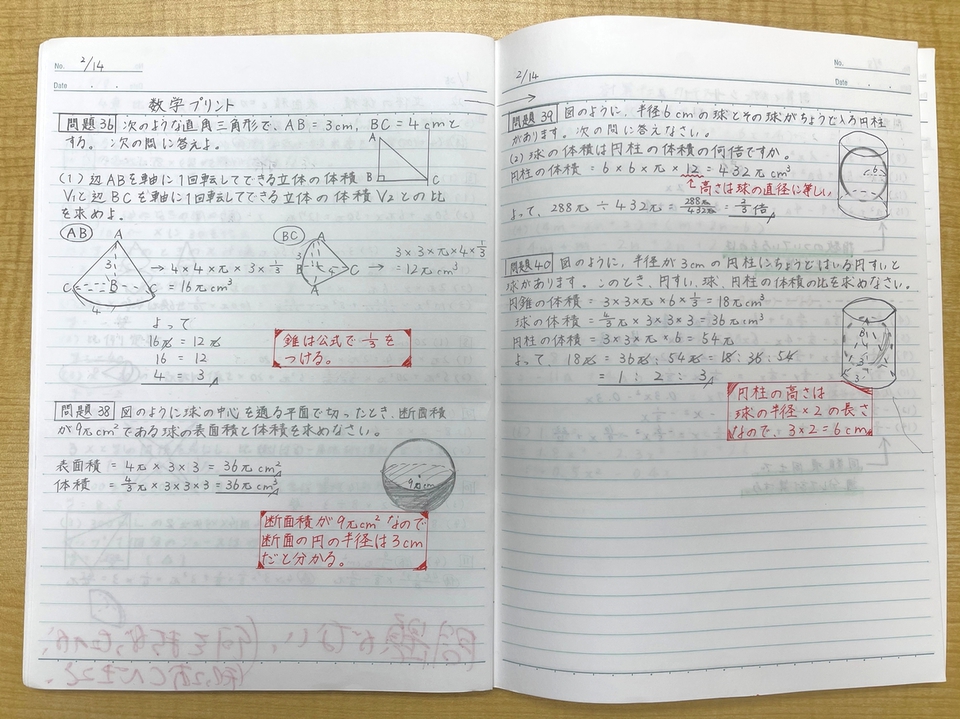 No. 2/14
Date . .
数学プリント
問題36 次のような直角三角形で、AB=3cm, BC=4cmと
する。次の問に答えよ。
A
B
C
(1)辺ABを軸に1回転してできる立体の体積
V₁と辺BCを軸に1回転してできる立体の体積V₂との比
を求めよ。
AB
A
3
C B C
4
→ 4×4×π×3×1/3
= 16πcm³
BC
A
3
B 4 C
A
→
3×3×π×4×1/3
= 12πcm³
よって
16π = 12π
16 = 12
4 = 3
錐は公式で1/3を
つける。
問題38 図のように球の中心を通る平面で切ったとき、断面積
が9πcm²である球の表面積と体積を求めなさい。
表面積 = 4π×3×3 = 36πcm²
体積 = 4/3π×3×3×3 = 36πcm³
9πcm
断面積が9πcm²なので
断面の円の半径は3cm
だと分かる。
2/14
No.
Date . .
問題39 図のように、半径6cmの球とその球がちょうど入る円柱
があります。次の問に答えなさい。
(2)球の体積は円柱の体積の何倍ですか。
円柱の体積 = 6×6×π×12 = 432πcm³
高さは球の直径に等しい
よって、288π ÷ 432π = 288π/432π = 2/3倍
6
問題40 図のように、半径が3cmの円柱にちょうどはいる円すいと
球があります。このとき、円すい、球、円柱の体積の比を求めなさい。
円錐の体積 = 3×3×π×6×1/3 = 18πcm³
球の体積 = 4/3π×3×3×3 = 36πcm³
円柱の体積 = 3×3×π×6 = 54π
よって 18π : 36π : 54π = 18 : 36 : 54
= 1 : 2 : 3
3
円柱の高さは
球の半径×2の長さ
なので、3×2=6cm